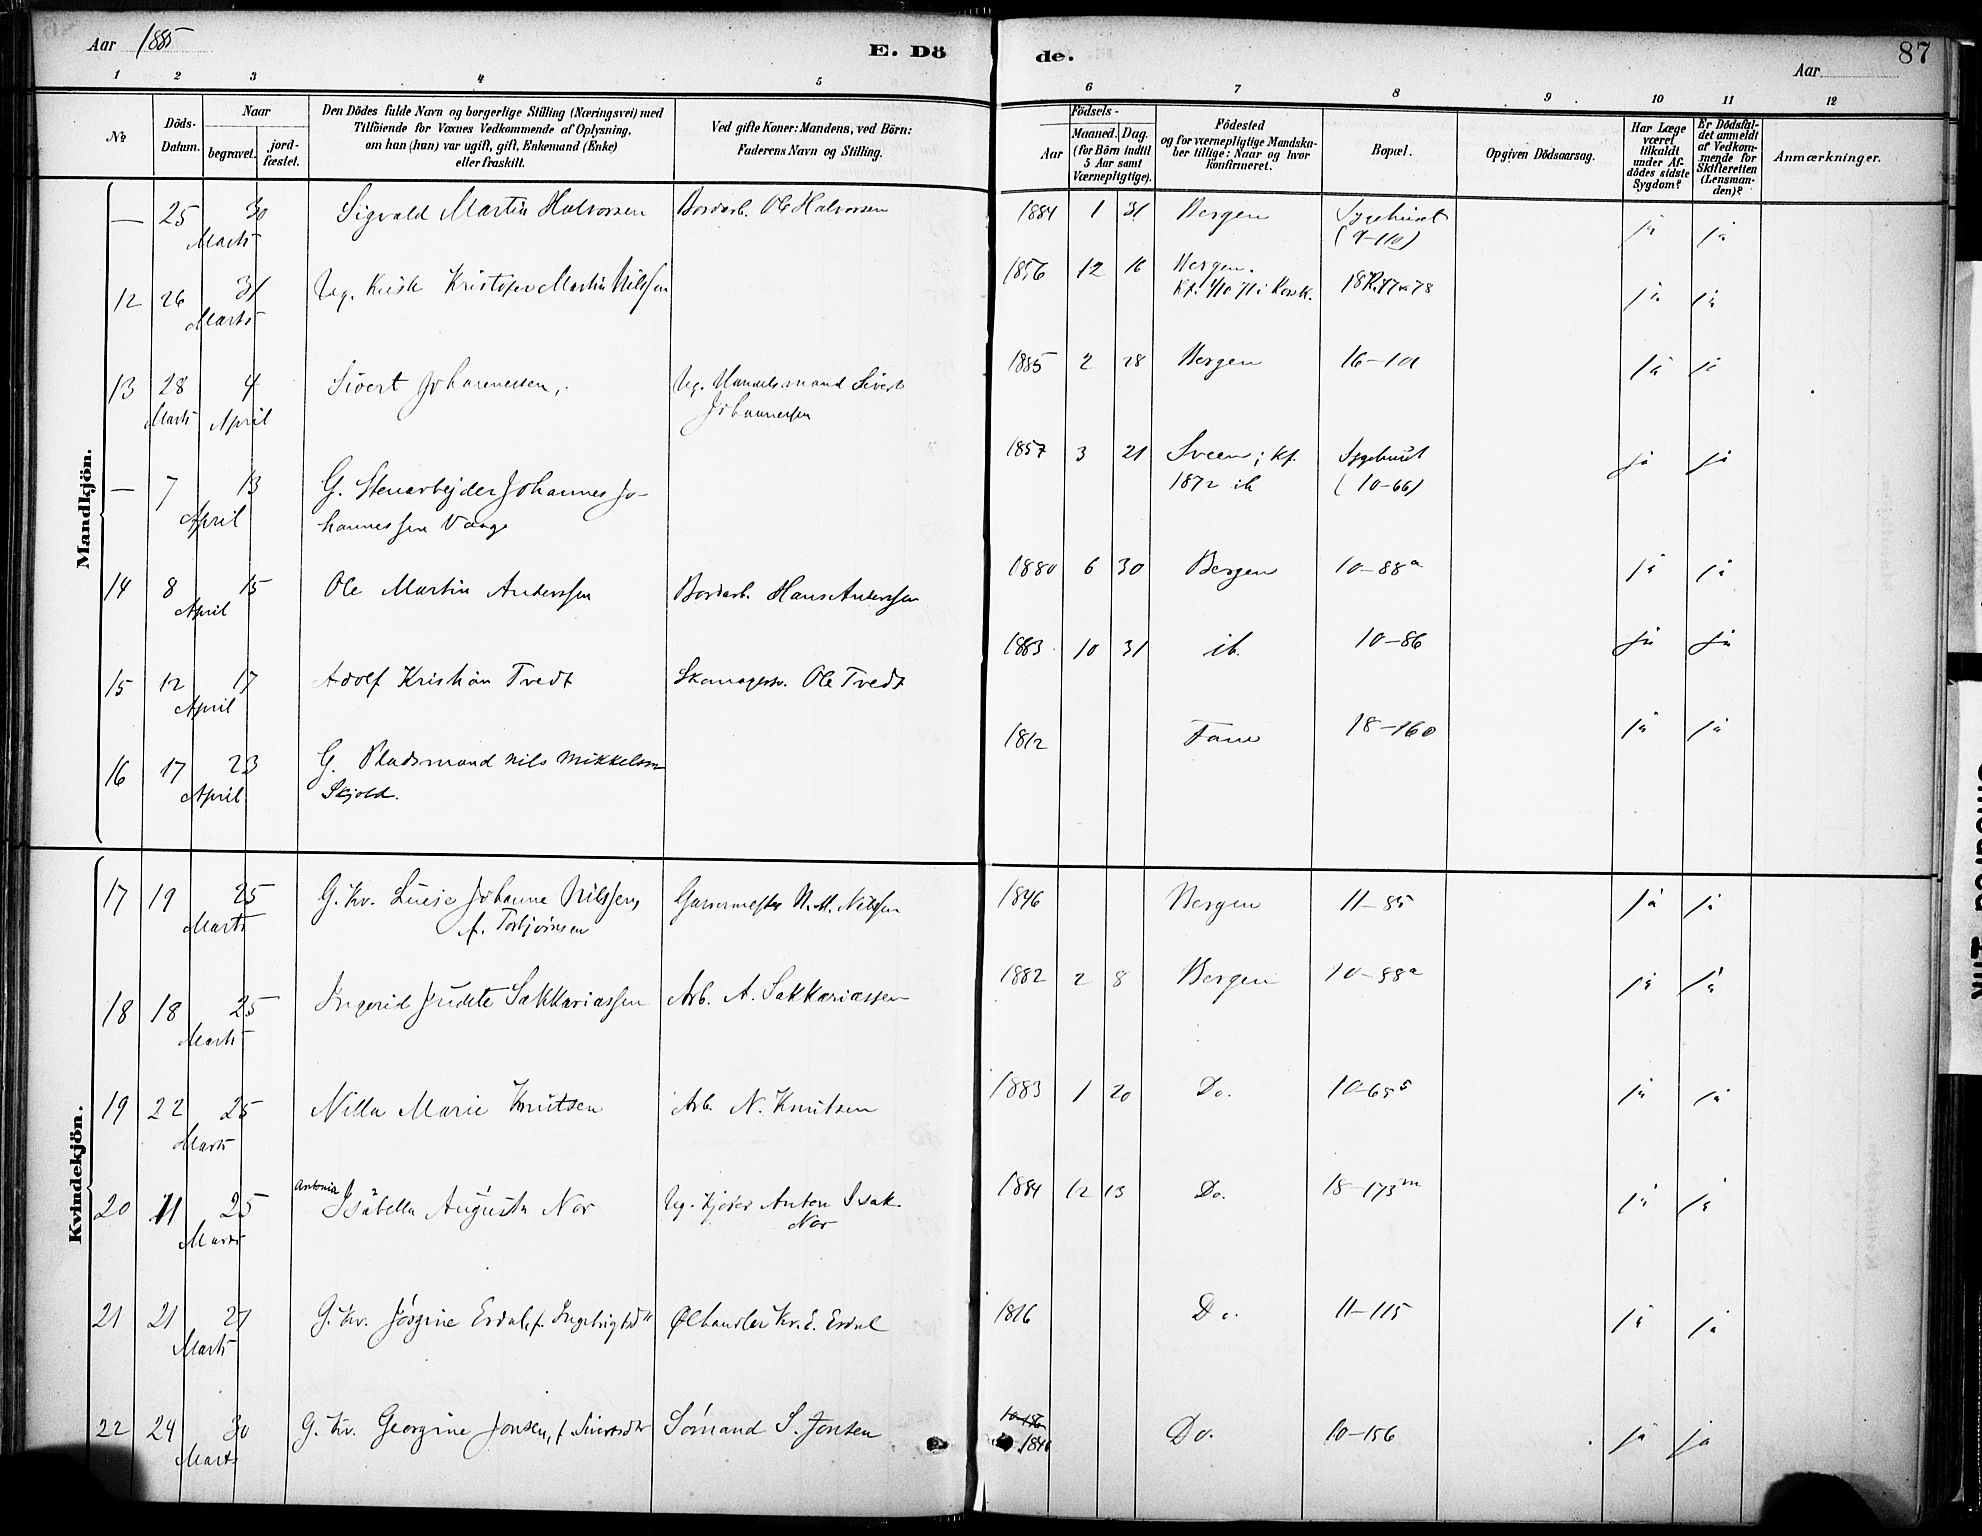 Aar 1885
E. Dö
de.
Aar
87
1 2 3 4 5 6 7 8 9 10 11 12
№
Döds-
Datum.
Naar
begravet.
jord-
fæstet.
Den Dödes fulde Navn og borgerlige Stilling (Næringsvei) med
Tilföiende for Voxnes Vedkommende af Oplysning,
om han (hun) var ugift, gift, Enkemand (Enke)
eller fraskilt.
Ved gifte Koner: Mandens, ved Börn:
Faderens Navn og Stilling.
Födsels-
Aar
Maaned. Dag.
(for Börn indtil
5 Aar samt
Værnepligtige).
Födested
og for værnepligtige Mandska-
ber tillige: Naar og hvor
konfirmeret.
Bopæl.
Opgiven Dödsaarsag.
Har Læge
været
tilkaldt
under Af-
dödes sidste
Sygdom?
Er Dödsfal-
det anmeldt
af Vedkom-
mende for
Skifteretten
(Lensman-
den)?
Anmærkninger.
Mandkjön.
— 25 30 Sigvald Martin Halvorsen Bordarb. Ole Halvorsen 1884 1 31 Bergen Sygehuset ja ja
Marts
12 26 31 Ug. Kusk Kristofer Martin Nilssen 1856 12 16 Bergen. ja ja
Marts Kf. 1/10 71 i Korsk.
13 28 4 Sivert Johannessen, Ug. Handelsmand Sivert 1885 2 28 Bergen 16-1a ja ja
Marts April Johannessen
— 7 13 G. Stenarbejder Johannes Jo- 1857 3 21 Sveen; kf. Sygehuset ja ja
April hannessen Vaage 1872 ib (10-66)
14 8 15 Ole Martin Anderssen Bordarb. Hans Anderssen 1880 6 30 Bergen 10-88a ja ja
April
15 12 17 Adolf Kristian Tvedt Skomagersv. Ole Tvedt 1883 10 31 ib. 10-86 ja ja
April
16 17 23 G. Pladsmand Nils Mikkelsen 1812 Fane 18-160 ja ja
April Skjold.
Kvindekjön.
17 19 25 G. Kv. Lucie Johanne Nilssen, Garvermester N. M. Nilssen 1846 Bergen 11-85 ja ja
Marts f. Torbjörnsen
18 18 25 Ingerid Judete Sakkariassen Arb. A. Sakkariassen 1882 2 8 Bergen 10-88a ja ja
Marts
19 22 25 Nilla Marie Knutsen Arb. N. Knutsen 1883 1 20 Do. ja ja
Marts
Antonia
20 11 25 Isabella Augusta Nor Ug. Kjører Anton Isak 1884 12 13 Do. 18-173m ja ja
Marts Nor
21 21 27 G. Kv. Jørgine Erdal, f. Ingebrigtsdtr Ølhandler Kr. E. Erdal 1816 Do. 11-115 ja ja
Marts
22 24 30 G. Kv. Georgine Jonsen, f. Sivertsdtr Sømand S. Jonsen 1846 Do. 10-156 ja ja
Marts